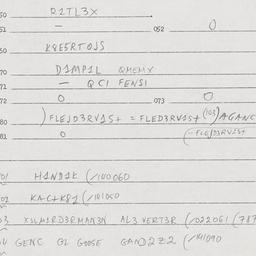 50 R2TL3X
51 — 052 0
50 K8E5RTOJS
70 D1MP1L QMEMX
71 — QCI FENSI
72 0 073 0
80 )FLEJD3RV1S+ = FLED3RV1S+ (103) AGANC
81 0 (-FLEJD3RV1S+
01 H1ND1K (/100060
02 KACTK8J (/101060
03 X1LM1RD3RMAN3N AL3 VERT3R (/022061 (787
GENC GL GOOSE GAND2Z2 (/141090